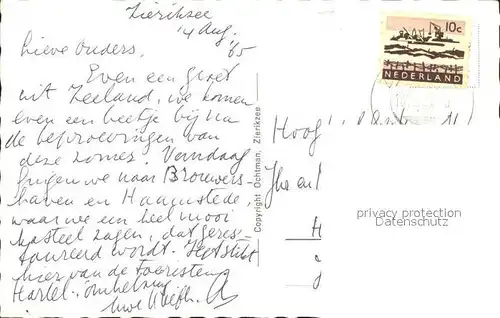 Zierikzee
14 Aug. '65
Lieve Ouders,
Even een groet
uit Zeeland, we komen
even een beetje bij na
de beproevingen van
deze zomer. Vandaag
gingen we naar Brouwers-
haven en Haamstede,
waar we een heel mooi
kasteel zagen, dat geres-
taureerd wordt. Het stikt
hier van de toeristen.
Hartel. omhelzing
Copyright Ochtman, Zierikzee
10c
NEDERLAND
privacy protection
Datenschutz